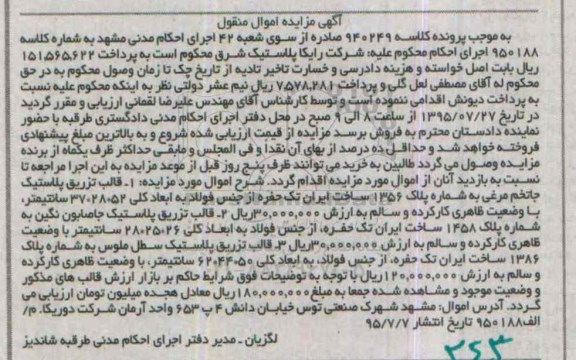 آگهی مزایده اموال منقول
به موجب پرونده کلاسه ۹۴۰۲۴۹ صادره از سوی شعبه ۴۲ اجرای احکام مدنی مشهد به شماره کلاسه
۹۵۰۱۸۸ اجرای احکام محکوم علیه: شرکت رایکا پلاستیک شرق محکوم است به پرداخت ۱۵۱,۵۶۵,۶۲۲
ریال بابت اصل خواسته و هزینه دادرسی و خسارت تاخیر تادیه از تاریخ چک تا زمان وصول محکوم به در حق
محکوم له آقای مصطفی لعل گلی و پرداخت ۷,۵۷۸,۲۸۱ ریال نیم عشر دولتی نظر به اینکه محکوم علیه نسبت
به پرداخت دیونش اقدامی ننموده است و توسط کارشناس آقای مهندس علیرضا لقمانی ارزیابی و مقرر گردید
در تاریخ ۱۳۹۵/۰۷/۲۷ از ساعت ۸ الی ۹ صبح در محل دفتر اجرای احکام مدنی دادگستری طرقبه با حضور
نماینده دادستان محترم به فروش برسد مزایده از قیمت ارزیابی شده شروع و به بالاترین مبلغ پیشنهادی
فروخته خواهد شد و حداقل ده درصد از بهای آن نقدا و فی المجلس و مابقی حداکثر ظرف یکماه از برنده
مزایده وصول می گردد طالبین به خرید می توانند ظرف پنج روز قبل از موعد مزایده به این اجرا مراجعه تا
نسبت به بازدید آنان از اموال مورد مزایده اقدام گردد. شرح اموال مورد مزایده: ۱- قالب تزریق پلاستیک
جاتخم مرغی به شماره پلاک ۱۳۵۶ ساخت ایران تک حفره از جنس فولاد به ابعاد کلی ۳۷۰۲۸۰۵۲ سانتیمتر،
با وضعیت ظاهری کارکرده و سالم به ارزش ۳۰,۰۰۰,۰۰۰ریال ۲- قالب تزریق پلاستیک جاصابون نگین به
شماره پلاک ۱۴۵۸ ساخت ایران تک حفره، از جنس فولاد به ابعاد کلی ۲۸۰۲۵۰۲۶ سانتیمتر با وضعیت
ظاهری کارکرده و سالم به ارزش ۳۰,۰۰۰,۰۰۰ریال ۳- قالب تزریق پلاستیک سطل ملوس به شماره پلاک
۱۳۸۶ ساخت ایران تک حفره، از جنس فولاد، به ابعاد کلی ۶۲۰۴۴۰۵۰ سانتیمتر، با وضعیت ظاهری کارکرده
و سالم به ارزش ۱۲۰,۰۰۰,۰۰۰ریال با توجه به توضیحات فوق شرایط حاکم بر بازار ارزش قالب های مذکور
و وضعیت موجود و مشاهده شده جمعا به مبلغ ۱۸۰,۰۰۰,۰۰۰ریال معادل هجده میلیون تومان ارزیابی می
گردد. آدرس اموال: مشهد شهرک صنعتی توس خیابان دانش ۴ پ ۶۵۳ واحد آرمان شرکت دوریکا. م/
الف۹۵۰۱۸۸ تاریخ انتشار ۹۵/۷/۷
لگزیان - مدیر دفتر اجرای احکام مدنی طرقبه شاندیز
۲۶۳